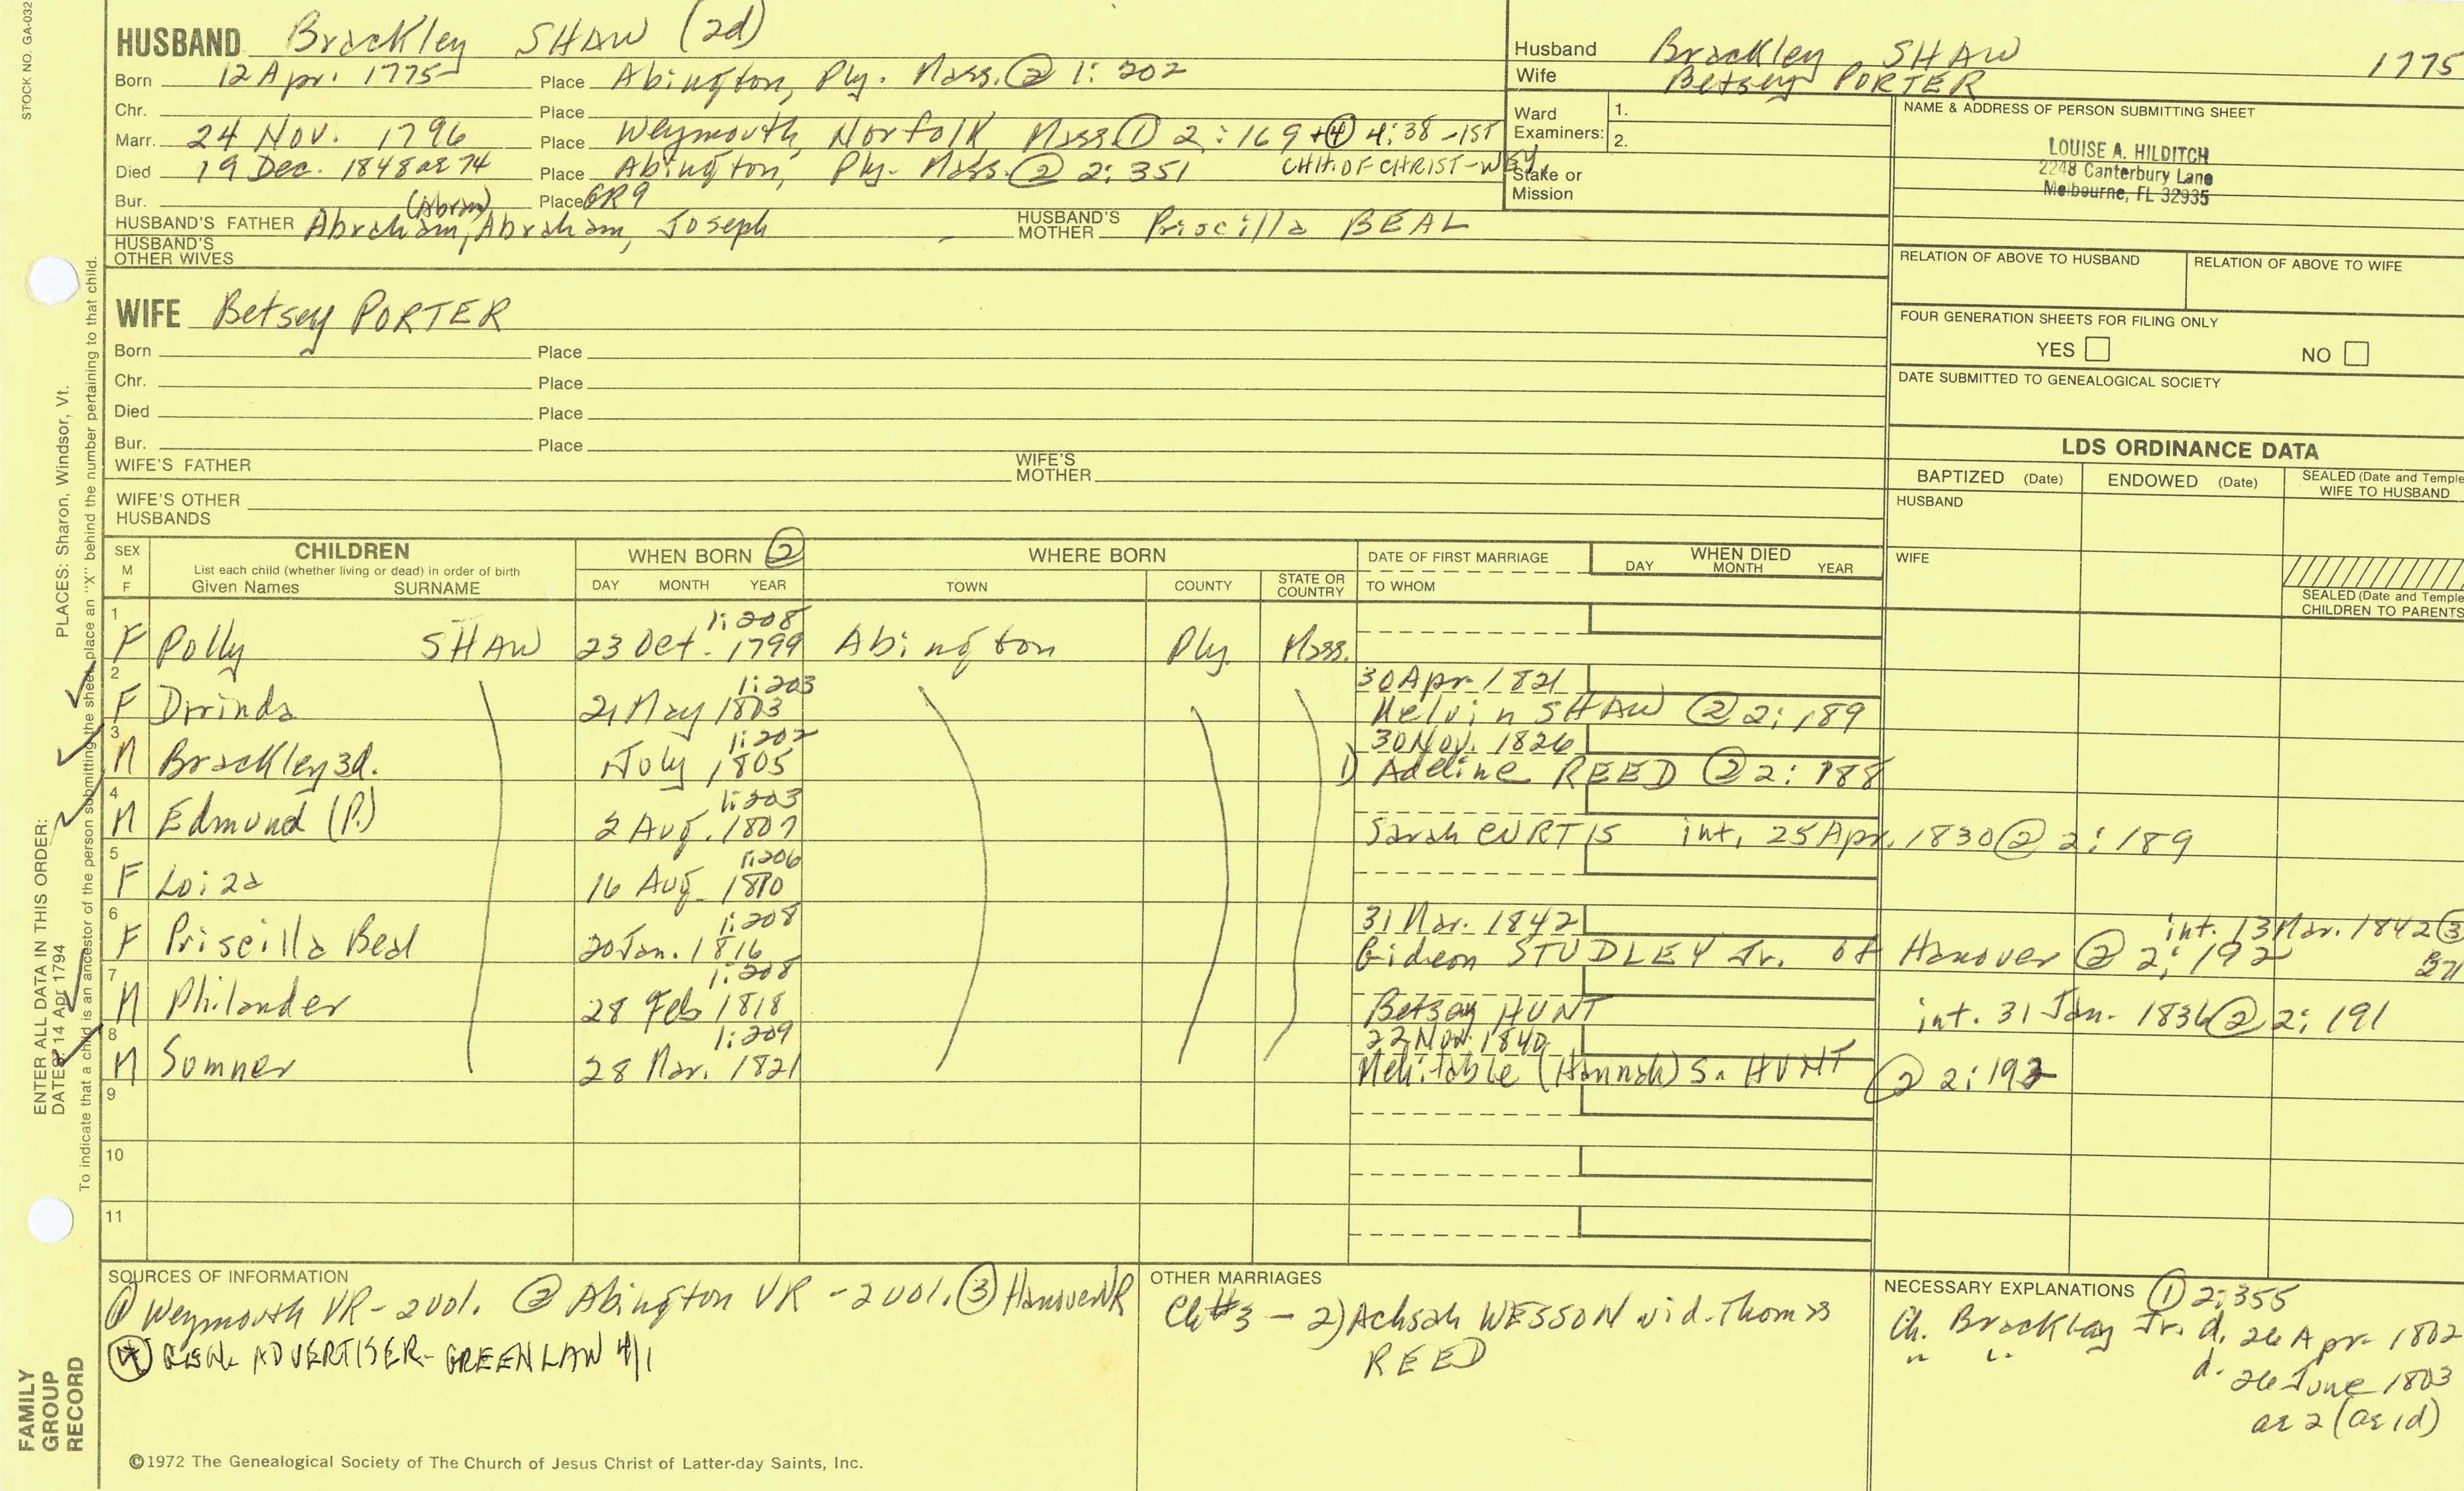 STOCK NO. GA-032
HUSBAND Brackley SHAW (2d)
Born 12 Apr. 1775 Place Abington, Ply. Mass. ② 1: 202
Chr. Place
Marr. 24 Nov. 1796 Place Weymouth, Norfolk, Mass ① 2:169 + ④ 4:38 - 1ST
CHH. OF CHRIST - WEY.
Died 19 Dec. 1848 ae 74 Place Abington, Ply. Mass. ② 2: 351
Bur. Place GR9
(Abram)
HUSBAND'S FATHER Abraham, Abraham, Joseph HUSBAND'S MOTHER Priscilla BEAL
HUSBAND'S OTHER WIVES
Husband Brackley SHAW 1775
Wife Betsey PORTER
Ward Examiners: 1.
2.
Stake or Mission
NAME & ADDRESS OF PERSON SUBMITTING SHEET
LOUISE A. HILDITCH
2248 Canterbury Lane
Melbourne, FL 32935
RELATION OF ABOVE TO HUSBAND RELATION OF ABOVE TO WIFE
FOUR GENERATION SHEETS FOR FILING ONLY
YES NO
DATE SUBMITTED TO GENEALOGICAL SOCIETY
WIFE Betsey PORTER
Born Place
Chr. Place
Died Place
Bur. Place
WIFE'S FATHER WIFE'S MOTHER
WIFE'S OTHER HUSBANDS
LDS ORDINANCE DATA
BAPTIZED (Date) ENDOWED (Date) SEALED (Date and Temple
WIFE TO HUSBAND
HUSBAND
WIFE
SEALED (Date and Temple
CHILDREN TO PARENTS
SEX M F CHILDREN WHEN BORN ② WHERE BORN DATE OF FIRST MARRIAGE WHEN DIED
List each child (whether living or dead) in order of birth
Given Names SURNAME DAY MONTH YEAR TOWN COUNTY STATE OR COUNTRY TO WHOM DAY MONTH YEAR
1 1:208
F Polly SHAW 23 Oct. 1799 Abington Ply. Mass.
2 1:203 30 Apr. 1821
F Dorinda 21 May 1803 Melvin SHAW ② 2:189
3 1:202 30 Nov. 1826
M Brackley 3d. July 1805 1) Adeline REED ② 2:188
4 1:203
M Edmund (P.) 2 Aug. 1807 Sarah CURTIS int. 25 Apr. 1830 ② 2:189
5 1:206
F Loiza 16 Aug. 1810
6 1:208 31 Mar. 1842 int. 13 Mar. 1842 ③
F Priscilla Beal 20 Jan. 1816 Gideon STUDLEY Jr. of Hanover ② 2:192
7 1:208
M Philander 28 Feb 1818 Betsey HUNT int. 31 Jan. 1836 ② 2:191
8 1:209 22 Nov. 1840
M Sumner 28 Mar. 1821 Mehitable (Hannah) S. HUNT ② 2:192
9
10
11
SOURCES OF INFORMATION
① Weymouth VR - 2 vol. ② Abington VR - 2 vol. ③ Hanover VR
④ ADVERTISER - GREENLAW 4/1
OTHER MARRIAGES
Ch #3 - 2) Achsah WESSON wid. Thomas
REED
NECESSARY EXPLANATIONS ① 2:355
Ch. Brackley Jr. d. 26 Apr. 1802
" " d. 26 June 1803
ae 2 (ae 1d)
ENTER ALL DATA IN THIS ORDER:
DATES: 14 Apr 1794
PLACES: Sharon, Windsor, Vt.
To indicate that a child is an ancestor of the person submitting the sheet, place an "X" behind the number pertaining to that child.
FAMILY GROUP RECORD
©1972 The Genealogical Society of The Church of Jesus Christ of Latter-day Saints, Inc.